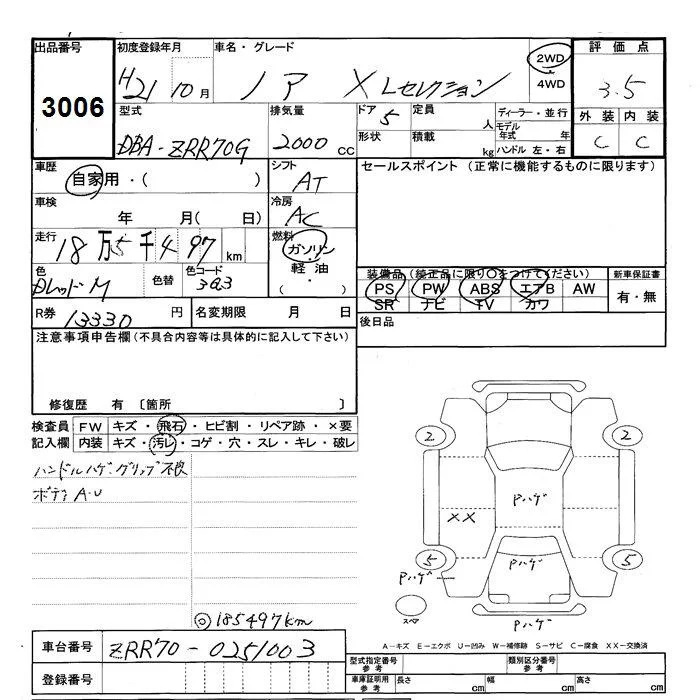 出品番号 初度登録年月 車名・グレード 2WD 評価点
3006 H21 10月 ノア X Lセレクション 4WD 3.5
型式 排気量 ドア 5 定員 人 ディーラー・並行 外装 内装
DBA-ZRR70G 2000cc 形状 積載 kg モデル年式 年 C C
ハンドル 左・右
車歴 シフト セールスポイント (正常に機能するものに限ります)
自家用・( ) AT
車検 冷房
年 月( 日) AC
走行 燃料
18万5千497km ガソリン
色 色替 色コード 軽油 装備品(純正品に限り○をつけてください) 新車保証書
DレッドM 3Q3 ・( ) PS PW ABS エアB AW 有・無
SR ナビ TV カワ
R券 13330円 名変期限 月 日 後日品
注意事項申告欄(不具合内容等は具体的に記入して下さい)
修復歴 有 〔箇所 〕
検査員 FW キズ・飛石・ヒビ割・リペア跡・×要
記入欄 内装 キズ・汚レ・コゲ・穴・スレ・キレ・破レ
ハンドルハゲ・グリップ不良
ボディA・U
2 2
Pハゲ
XX
5 Pハゲ 5
Pハゲ
スペア
◎185497km
A－キズ E－エクボ U－凹み W－補修跡 S－サビ C－腐食 XX－交換済
車台番号 ZRR70-0251003
型式指定番号 参考 類別区分番号 参考
登録番号 車庫証明用 参考 長さ cm 幅 cm 高さ cm